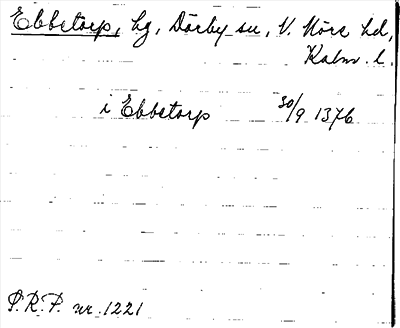 Ebbetorp, hg, Dörby sn, N. Möre hd,
Kalm. l.
i Ebbetorp 30/9 1376
S.R.P. nr. 1221